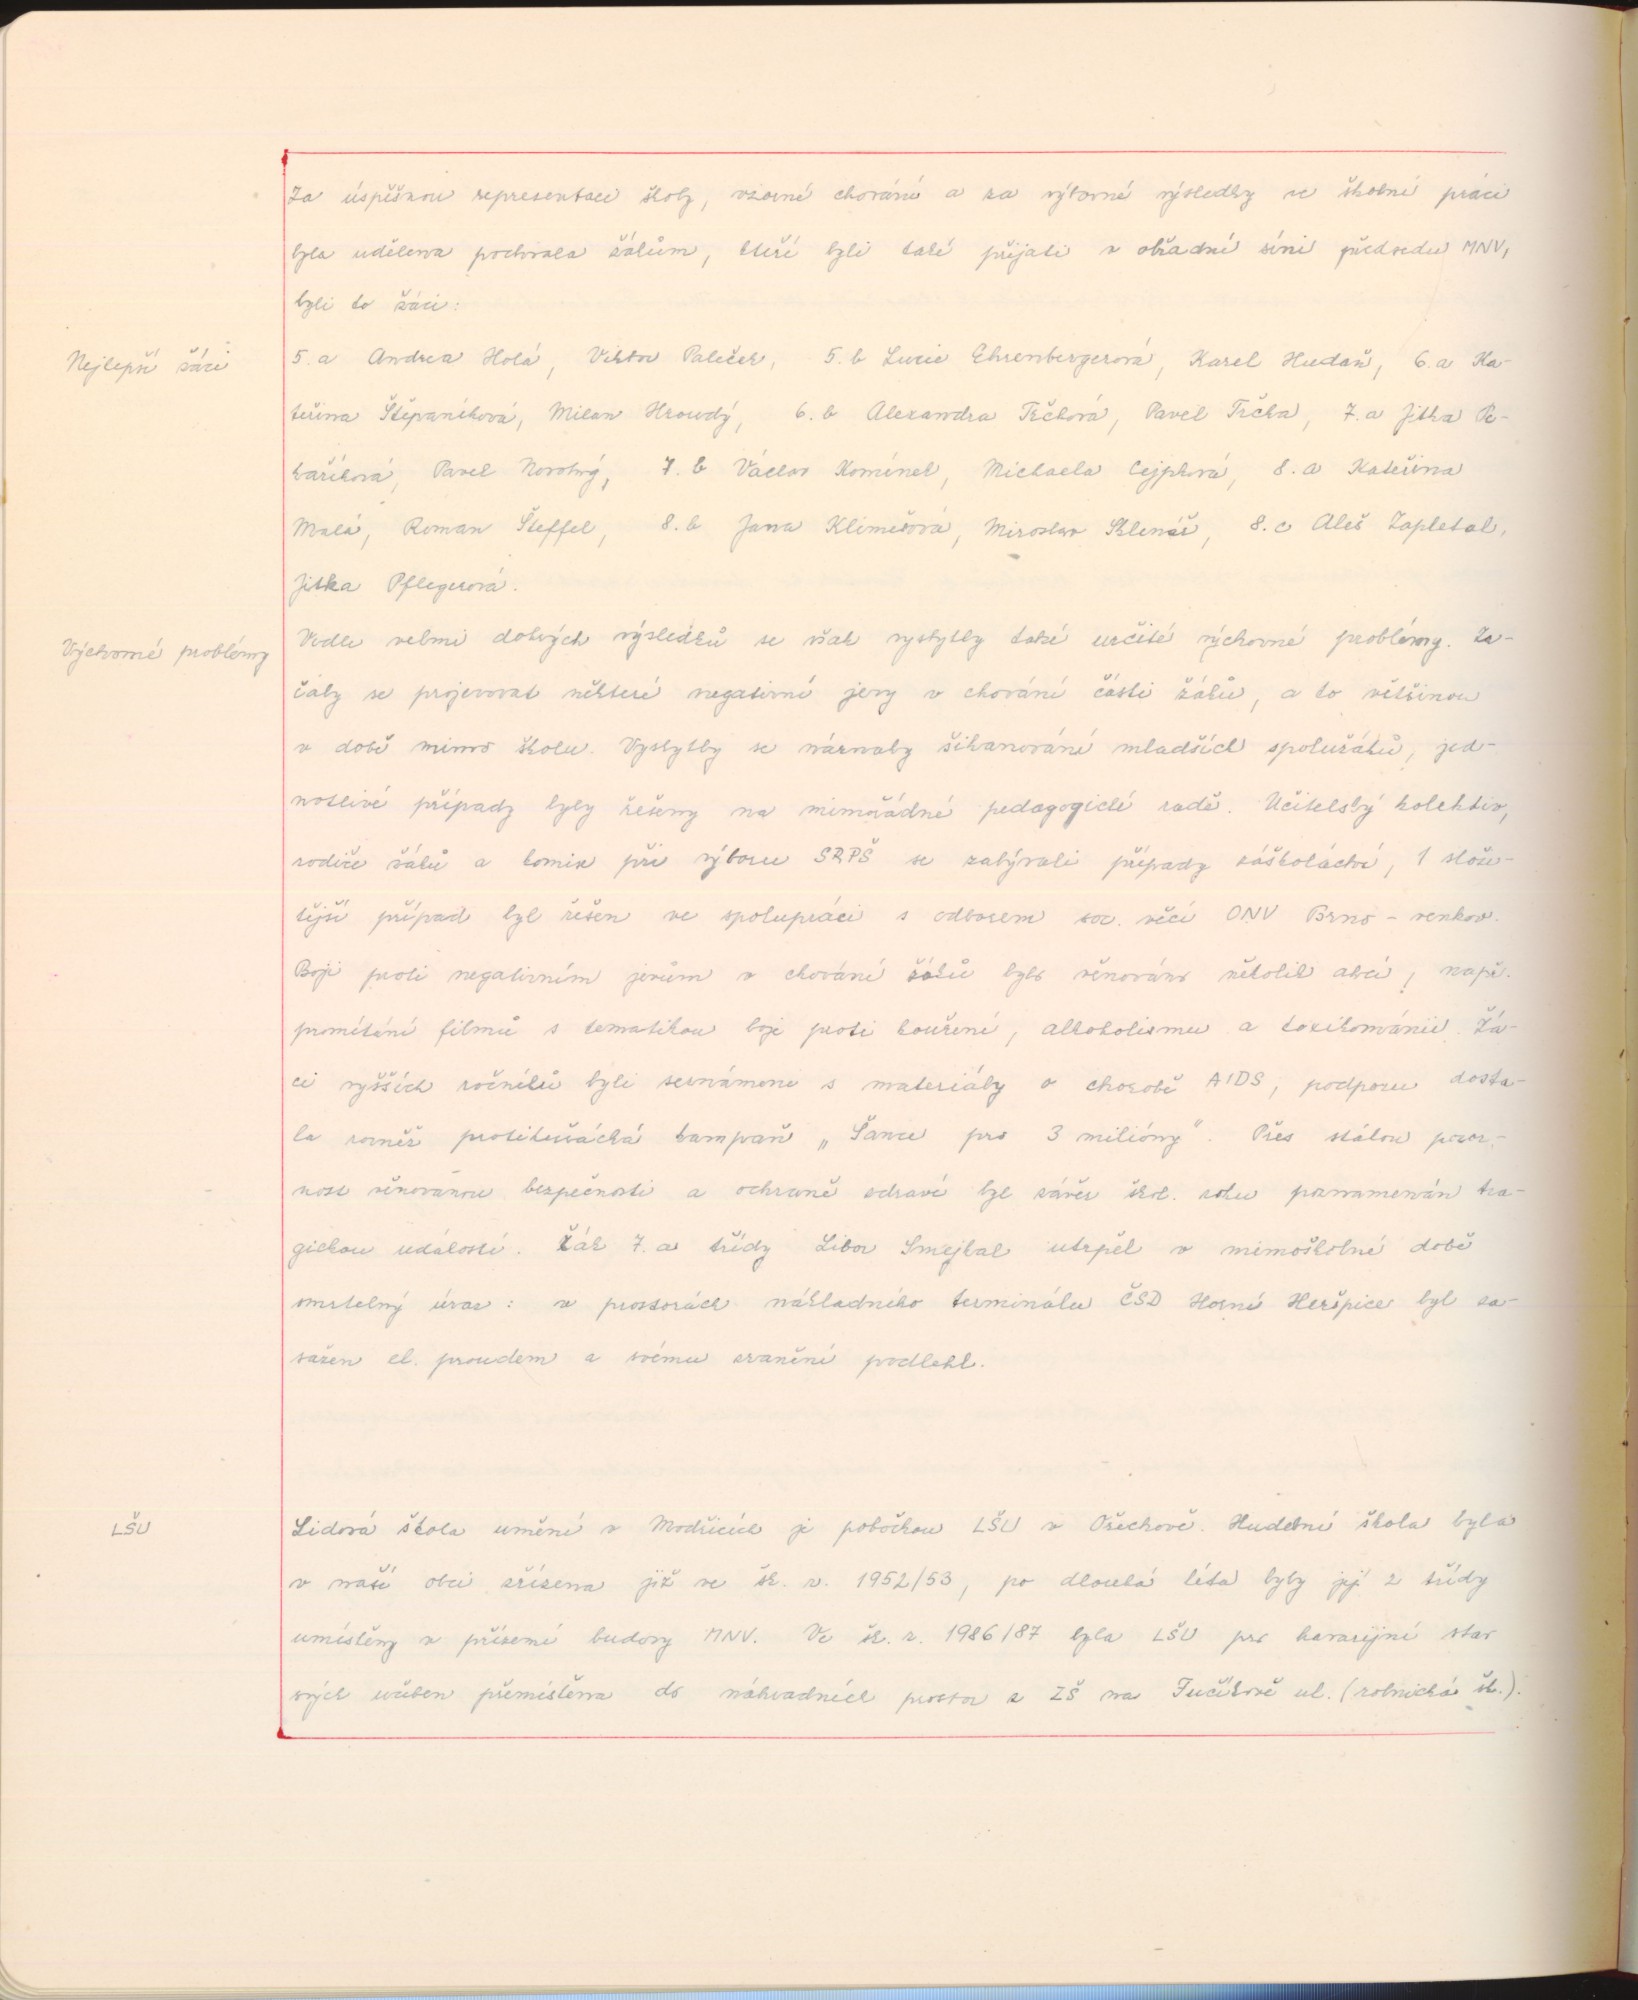 Za úspěšnou representaci školy, vzorné chování a za výborné výsledky ve školní práci
byla udělena pochvala žákům, kteří byli také přijati v obřadní síni předsedou MNV,
byli to žáci:
Nejlepší žáci
5.a Andrea Holá, Viktor Paleček, 5.b Lucie Ehrenbergerová, Karel Hudaň, 6.a Ka-
teřina Štěpaníková, Milan Hrowdý, 6.b Alexandra Trčková, Pavel Trčka, 7.a Jitka Pe-
kaříková, Pavel Novotný, 7.b Václav Komínek, Michaela Cejpková, 8.a Kateřina
Malá, Roman Šteffel, 8.b Jana Klimešová, Miroslav Sklenář, 8.c Aleš Zapletal,
Jitka Pflegerová.
Výchovné problémy
Vedle velmi dobrých výsledků se však vyskytly také určité výchovné problémy. Za-
čaly se projevovat některé negativní jevy v chování části žáků, a to většinou
v době mimo školu. Vyskytly se náznaky šikanování mladších spolužáků, jed-
notlivé případy byly řešeny na mimořádné pedagogické radě. Učitelský kolektiv,
rodiče žáků a komise při výboru SRPŠ se zabývali případy záškoláctví, 1 slože-
tější případ byl řešen ve spolupráci s odborem soc. věcí ONV Brno - venkov.
Boji proti negativním jevům v chování žáků bylo věnováno několik akcí, např.
promítání filmů s tematikou boje proti kouření, alkoholismu a toxikománii. Žá-
ci vyšších ročníků byli seznámeni s materiály o chorobě AIDS, podporu dosta-
la rovněž protikuřácká kampaň „Šance pro 3 milióny". Přes stálou pozor-
nost věnovanou bezpečnosti a ochraně zdraví byl závěr škol. roku poznamenán tra-
gickou událostí. Žák 7.a třídy Libor Smejkal utrpěl v mimoškolní době
smrtelný úraz: v prostorách nákladního terminálu ČSD Horní Heršpice byl za-
sažen el. proudem a svému zranění podlehl.
LŠU
Lidová škola umění v Modřicích je pobočkou LŠU v Ořechově. Hudební škola byla
v naší obci zřízena již ve šk. r. 1952/53, po dlouhá léta byly její 2 třídy
umístěny v přízemí budovy MNV. Ve šk. r. 1986/87 byla LŠU pro havarijní stav
svých učeben přemístěna do náhradních prostor v ZŠ na Fučíkově ul. (rolnická šk.).